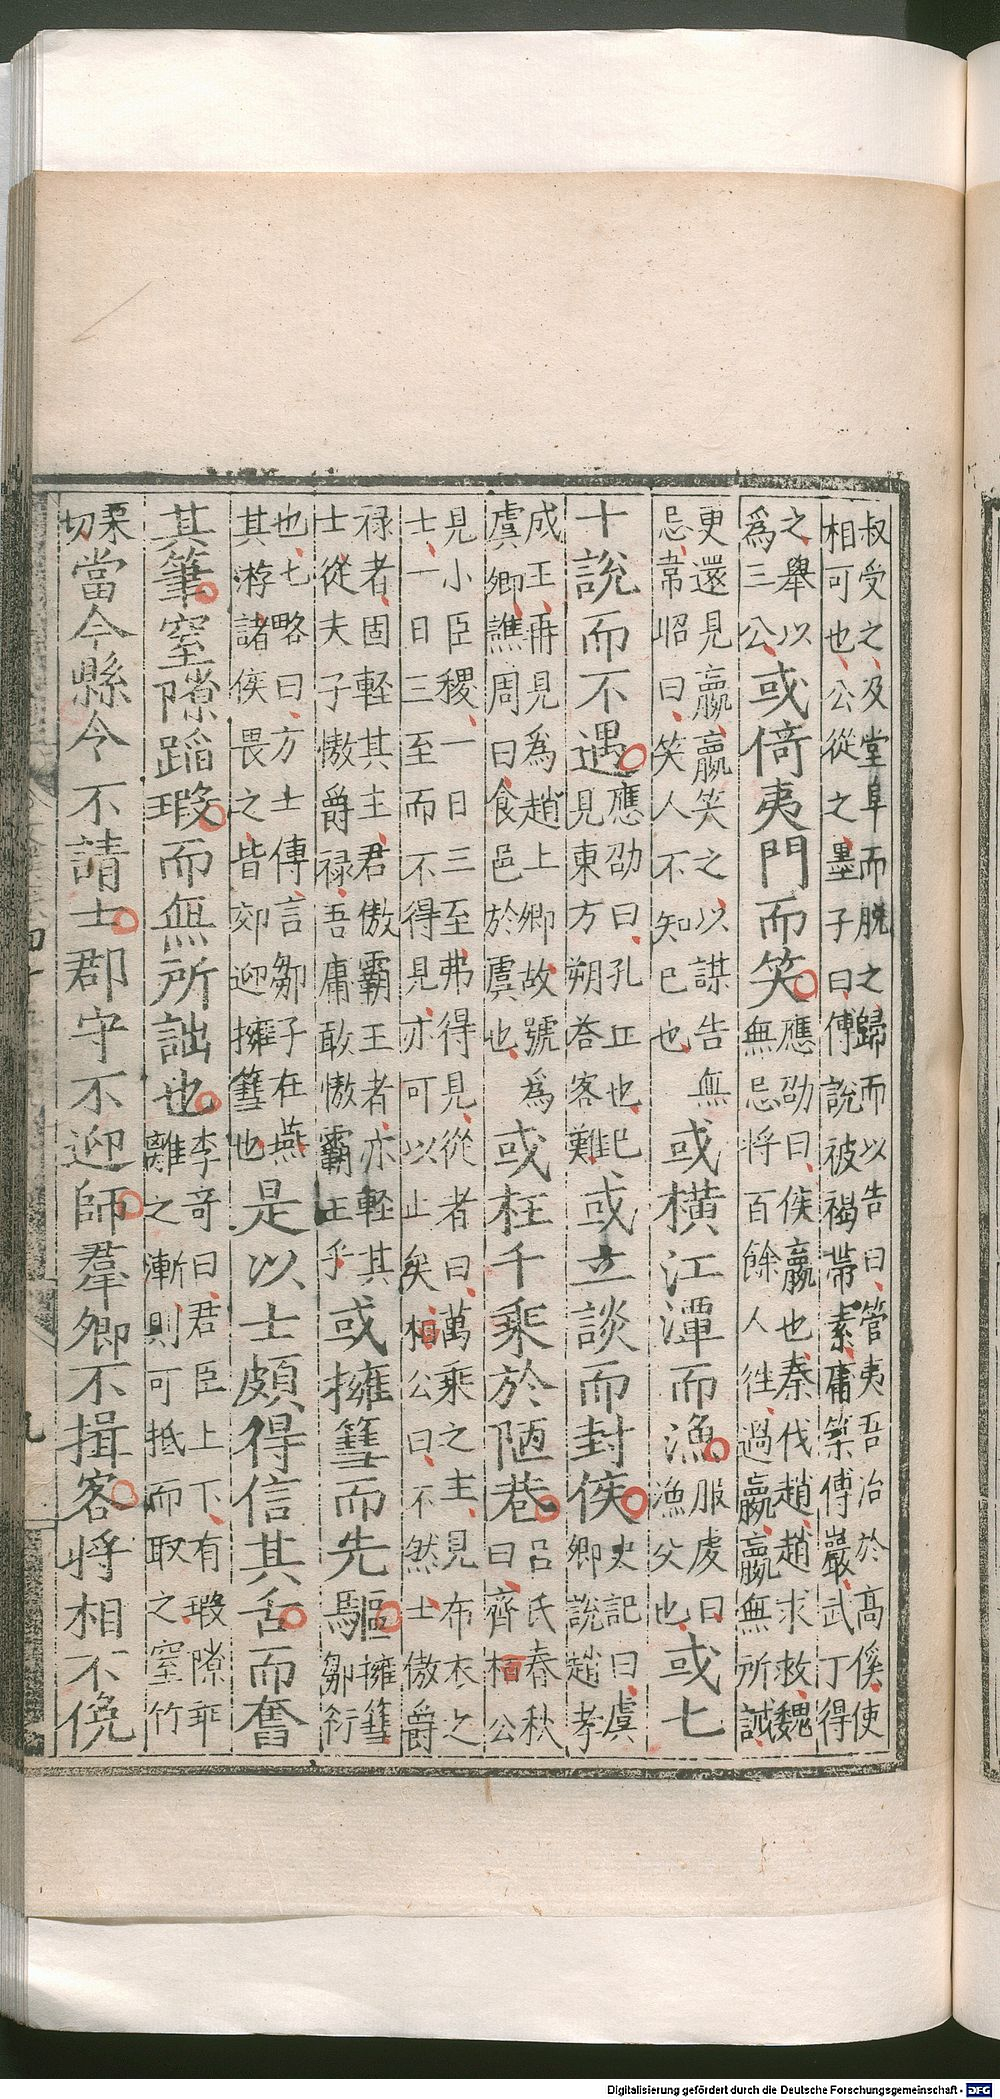 叔受之及堂阜而脫之歸而以告曰管夷吾治於高傒使
相可也公從之墨子曰傅說被褐帶素庸築傅巖武丁得
之舉以
爲三公或倚夷門而笑應劭曰侯嬴也秦伐趙趙求救魏
無忌將百餘人往過嬴嬴無所誡
更還見嬴嬴笑之以謀告無
忌韋昭曰笑人不知己也或橫江潭而漁服虔曰
漁父也或七
十說而不遇應劭曰孔丘也已
見東方朔荅客難或立談而封侯史記曰虞
卿說趙孝
成王再見爲趙上卿故號爲
虞卿譙周曰食邑於虞也或枉千乘於陋巷呂氏春秋
曰齊桓公
見小臣稷一日三至弗得見從者曰萬乘之主見布衣之
士一日三至而不得見亦可以止矣桓公曰不然士傲爵
祿者固輕其主君傲霸王者亦輕其
士從夫子慠爵祿吾庸敢慠霸王乎或擁篲而先驅擁篲
鄒衍
也七略曰方士傳言鄒子在燕
其游諸侯畏之皆郊迎擁篲也是以士頗得信其舌而奮
其筆窒隙蹈瑕而無所詘也李奇曰君臣上下有瑕隙乖
離之漸則可抵而取之窒竹
栗
切當今縣令不請士郡守不迎師羣卿不揖客將相不俛
九
Digitalisierung gefördert durch die Deutsche Forschungsgemeinschaft - DFG